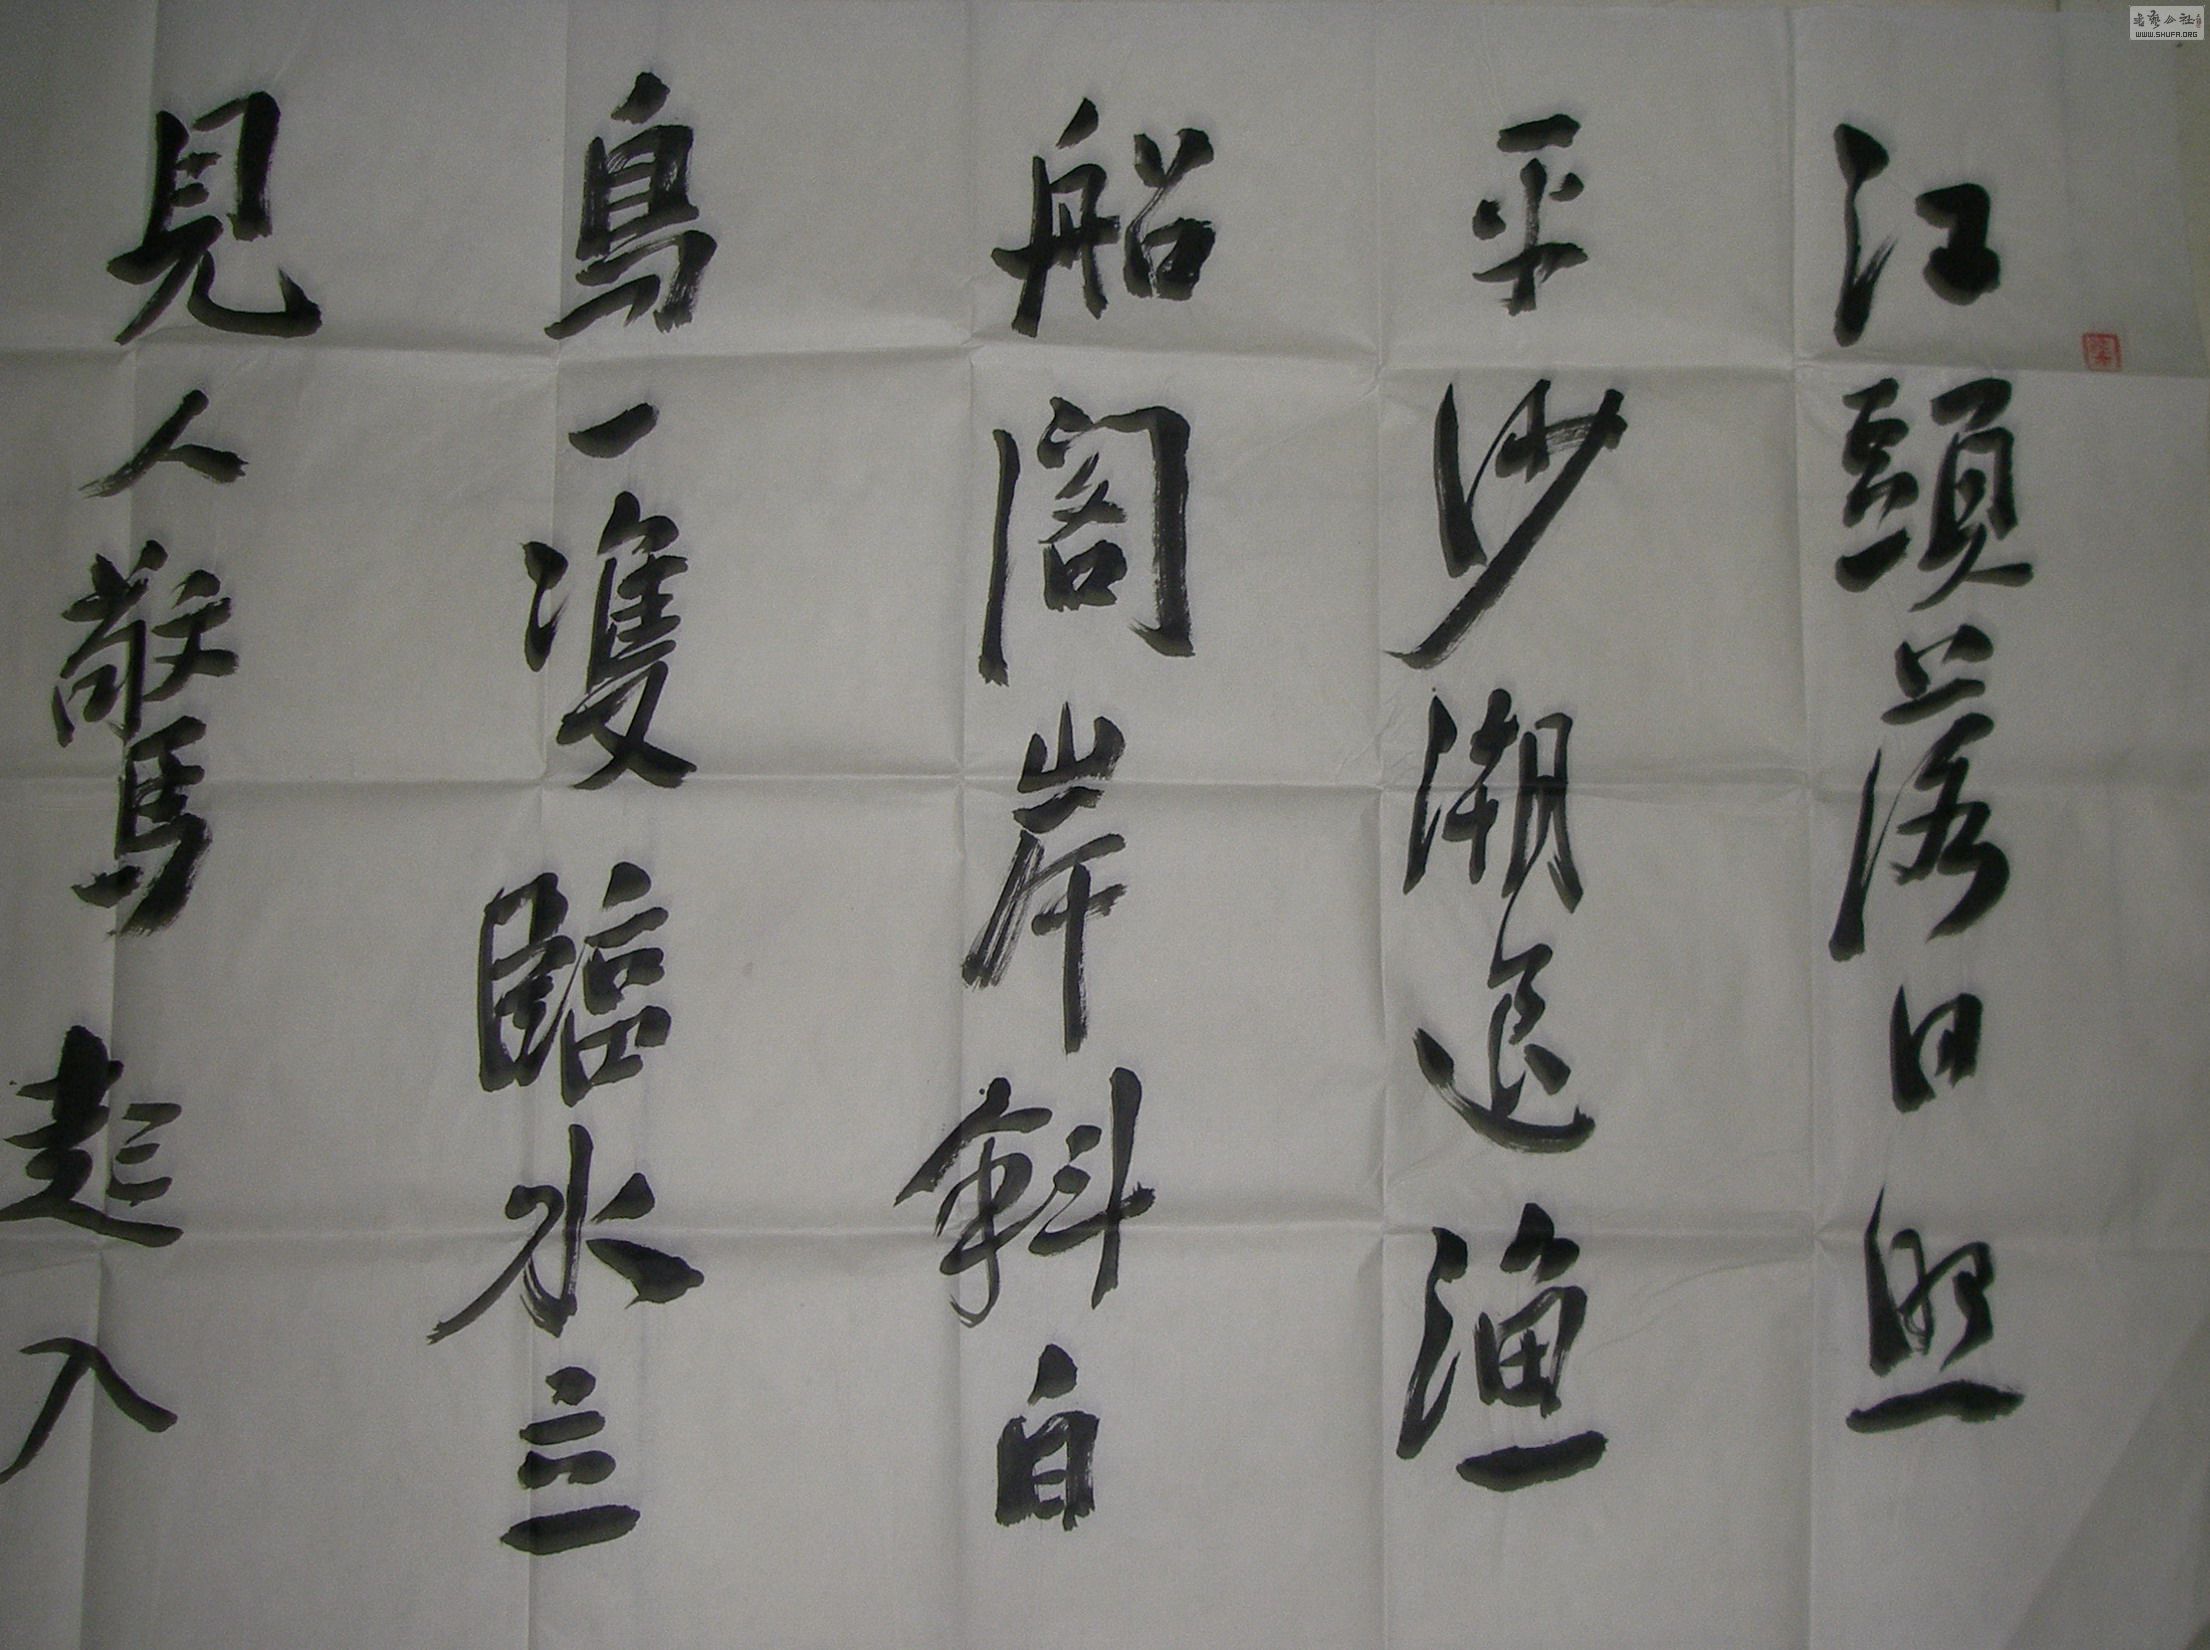 江頭落日照
平沙潮退漁
船閣岸斜白
鳥一雙臨水立
見人驚起入
書藝公社
WWW.SHUFA.ORG